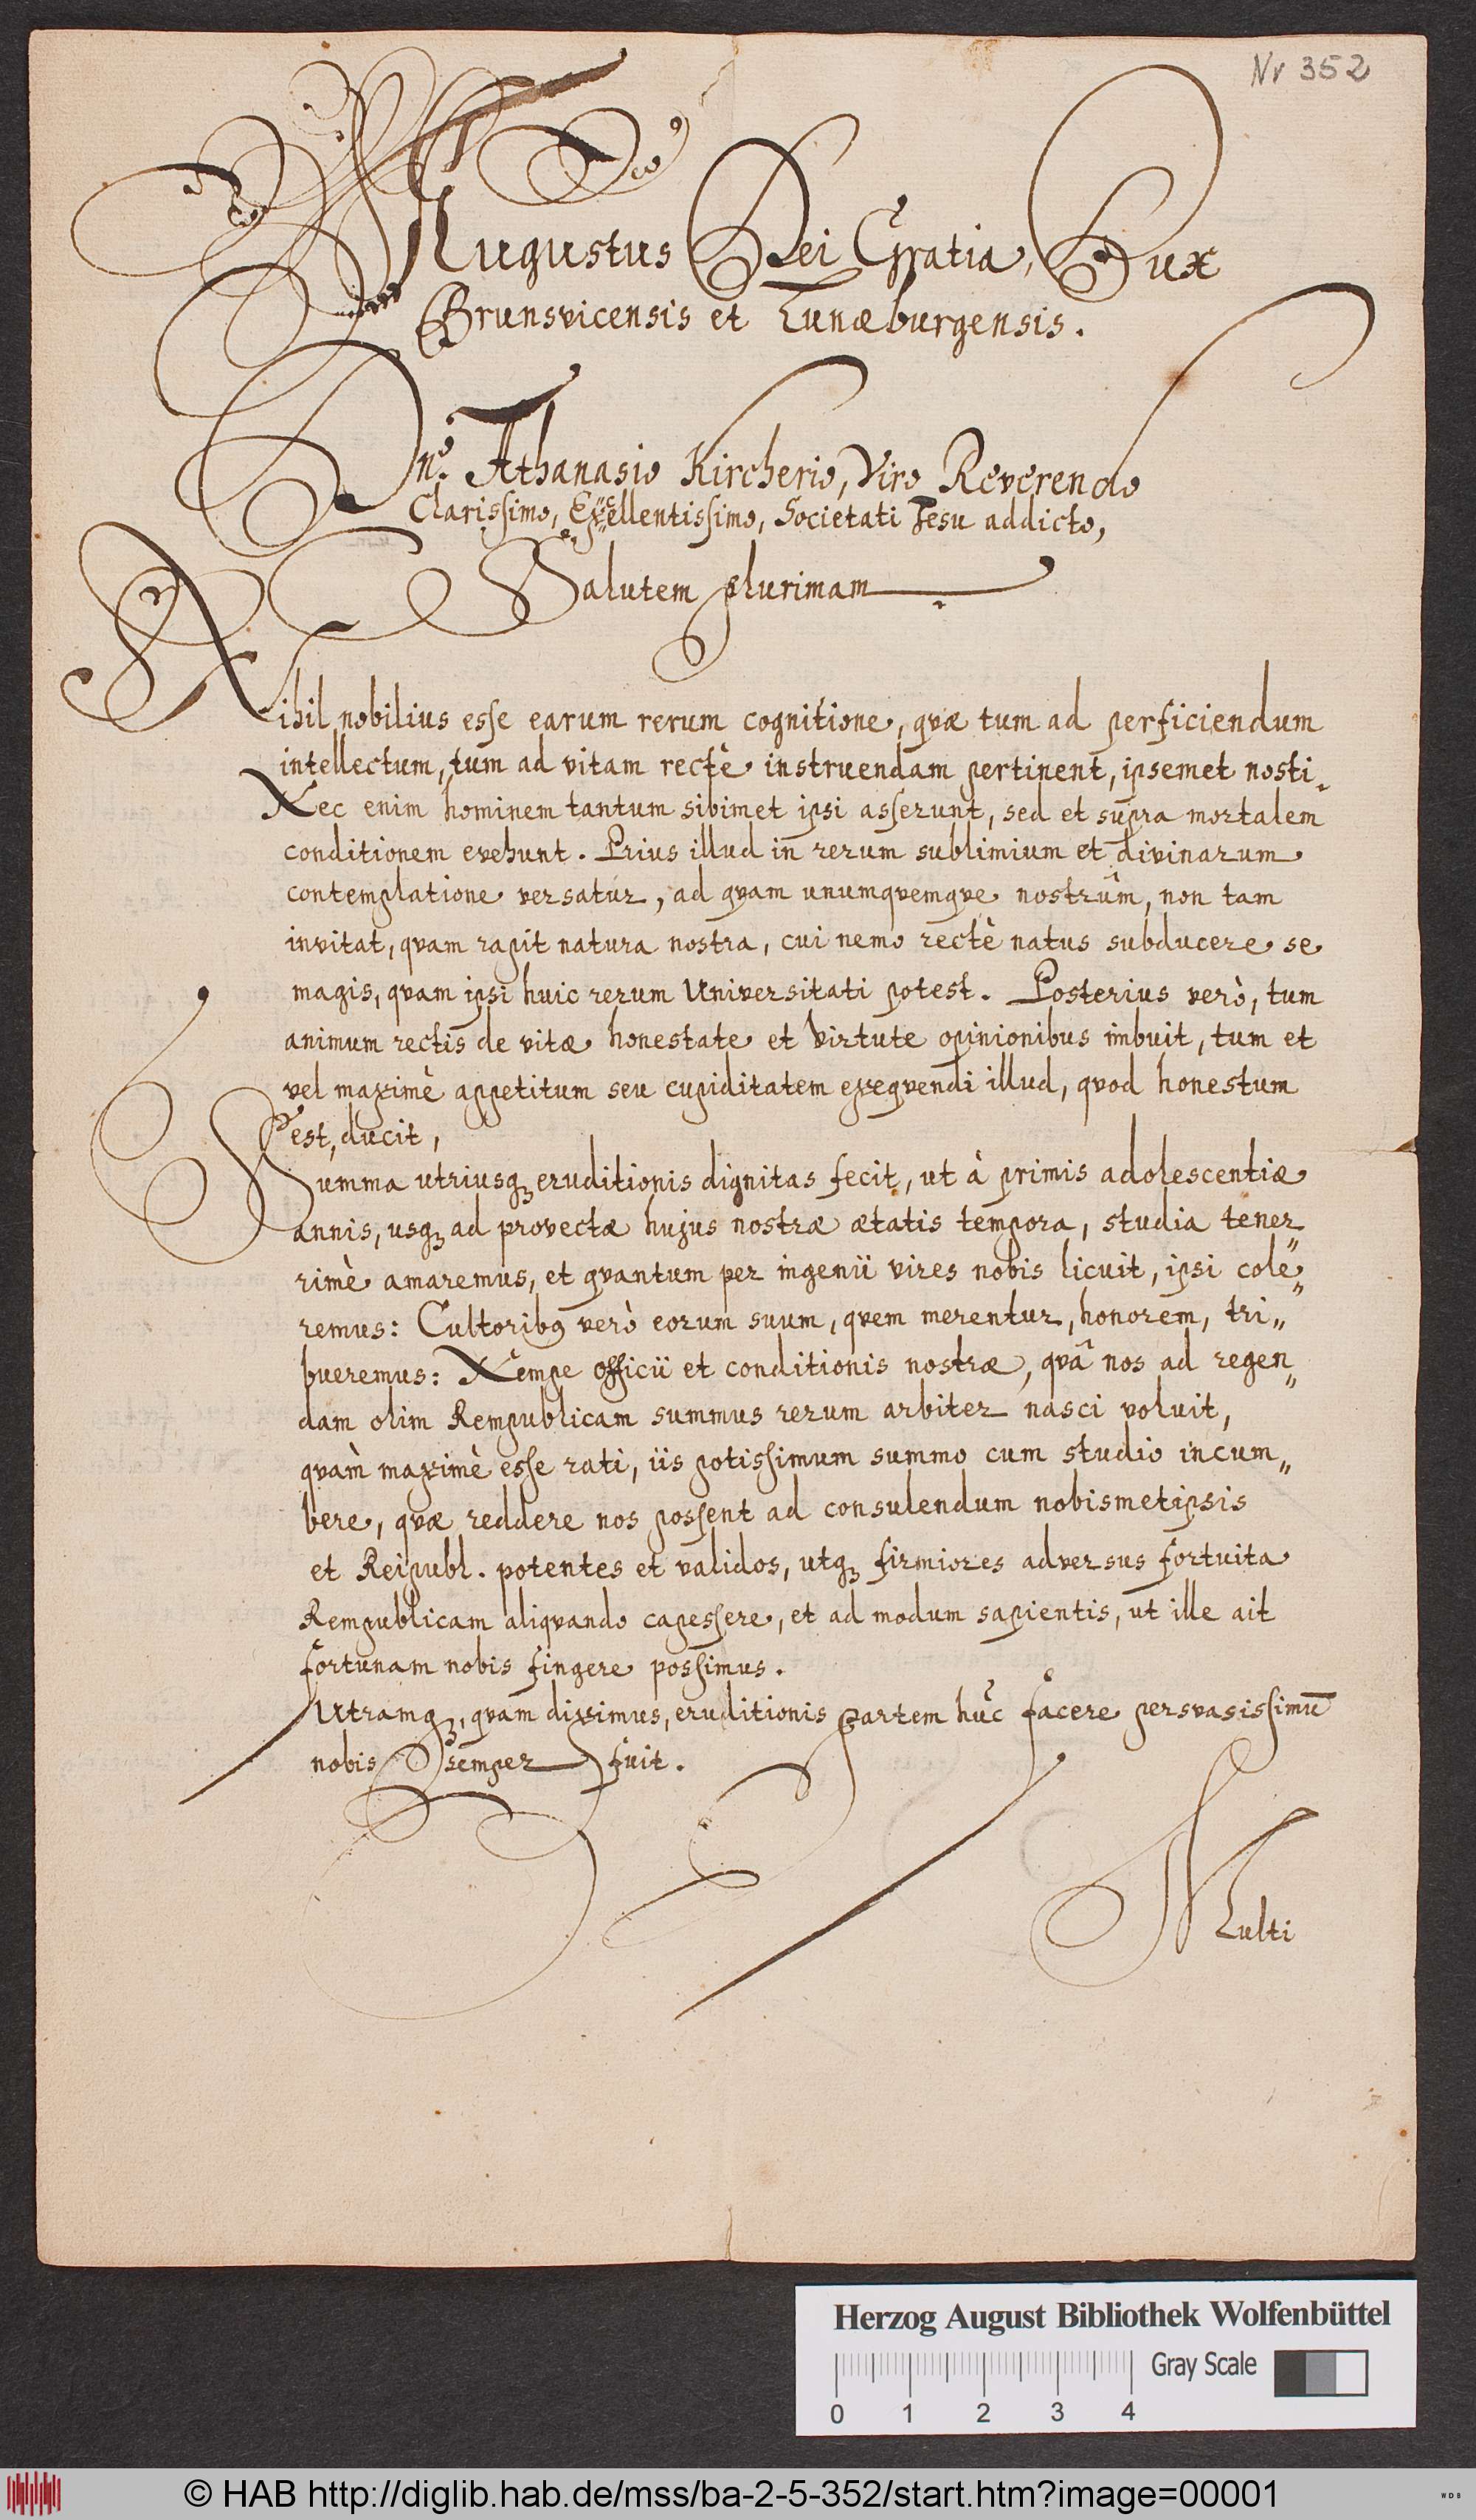 Nr 352
Augustus Dei Gratia, Dux
Brunsvicensis et Lunæburgensis.
Dno. Athanasio Kircherio, Viro Reverendo
Clarissimo, Excellentissimo, Societati Jesu addicto,
Salutem plurimam
Nihil nobilius esse earum rerum cognitione, qvæ tum ad perficiendum
intellectum, tum ad vitam rectè instruendam pertinent, ipsemet nosti.
Nec enim hominem tantum sibimet ipsi asserunt, sed et supra mortalem
conditionem evehunt. Prius illud in rerum sublimium et divinarum
contemplatione versatur, ad qvam unumqvemqve nostrûm, non tam
invitat, qvam rapit natura nostra, cui nemo rectè natus subducere se
magis, qvam ipsi huic rerum Universitati potest. Posterius verò, tum
animum rectis de vitæ honestate et virtute opinionibus imbuit, tum et
vel maximè appetitum seu cupiditatem exeqvendi illud, qvod honestum
est, ducit,
Summa utriusq; eruditionis dignitas fecit, ut à primis adolescentiæ
annis, usq; ad provectæ hujus nostræ ætatis tempora, studia tener„
rimè amaremus, et qvantum per ingenii vires nobis licuit, ipsi cole„
remus: Cultoribꝰ verò eorum suum, qvem merentur, honorem, tri„
bueremus: Nempe officii et conditionis nostræ, qvâ nos ad regen„
dam olim Rempublicam summus rerum arbiter nasci voluit,
qvàm maximè esse rati, iis potissimum summo cum studio incum„
bere, qvæ reddere nos possent ad consulendum nobismetipsis
et Reipubl. potentes et validos, utq; firmiores adversus fortuita
Rempublicam aliqvando capessere, et ad modum sapientis, ut ille ait
fortunam nobis fingere possimus.
Utramq;, qvam diximus, eruditionis partem huc facere persvasissimū
nobis semper fuit.
Multi
Herzog August Bibliothek Wolfenbüttel
0 1 2 3 4 Gray Scale
© HAB http://diglib.hab.de/mss/ba-2-5-352/start.htm?image=00001
WDB